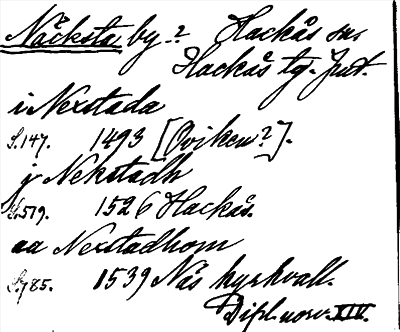 Näcksta by? Hackås sn.
Hackås tg. Jmt.
i Nexstada
S. 147. 1493 [Oviken?].
j Nekstadh
S. 519. 1526 Hackås.
aa Nexstadhom
S. 785. 1539 Näs kyrkvall.
Dipl. norv. XIV.